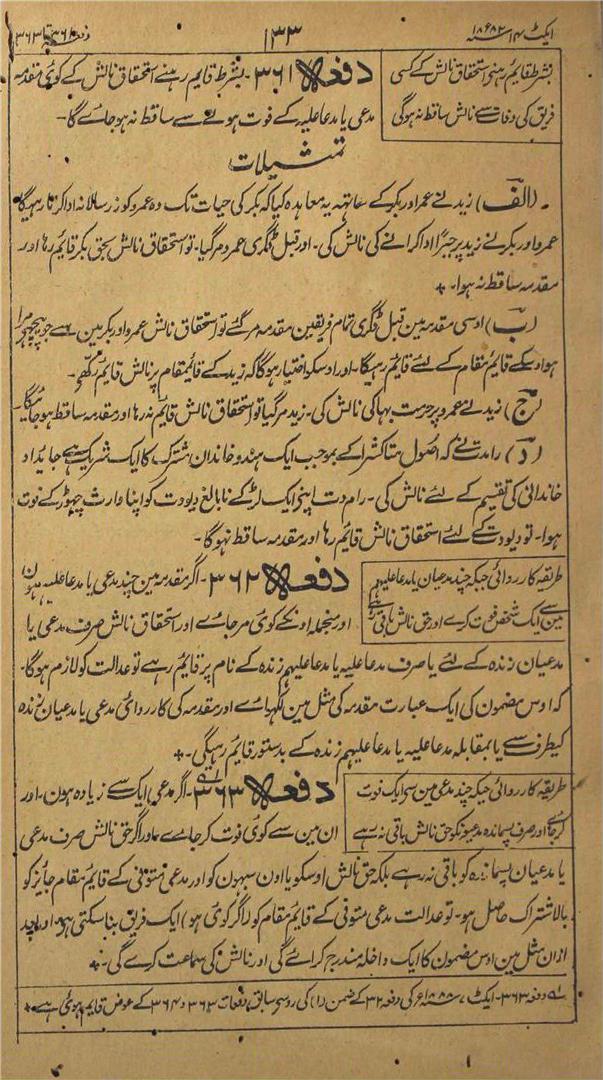 ایکٹ ۱۴ سنہ ۱۸۸۲ء
۱۳۳
دفعات ۳۶۱ تا ۳۶۳
بشرط قایم رہنے استحقاق نالش کے کسی
فریق کی وفات سے نالش ساقط نہ ہوگی
دفعہ ۳۶۱۔ بشرط قایم رہنے استحقاق نالش کے کوئی مقدمہ
مدعی یا مدعا علیہ کے فوت ہونے سے ساقط نہ ہو جائے گا۔
تمثیلات
(الف) زید نے عمرو اور بکر کے ساتھ یہ معاہدہ کیا کہ بکر کی حیات تک وہ عمرو کو زر سالانہ ادا کرتا رہیگا
عمرو اور بکر نے زید پر جبراً ادا کرانے کی نالش کی۔ اور قبل ڈگری عمرو مر گیا۔ تو استحقاق نالش بحق بکر قایم رہا اور
مقدمہ ساقط نہ ہوا۔
(ب) اوسی مقدمہ مین قبل ڈگری تمام فریقین مقدمہ مر گئے تو استحقاق نالش عمرو اور بکر مین سے جو پیچھے مرا
ہو اوسکے قایم مقام کے لئے قایم رہیگا۔ اور اوسکو اختیار ہوگا کہ زید کے قائیمقام پر نالش قایم رکھے۔
(ج) زید نے عمرو پر حرمت بہا کی نالش کی۔ زید مر گیا تو استحقاق نالش قایم نہ رہا اور مقدمہ ساقط ہو جائیگا۔
(د) رام دت نے کہ اصول متاکشرا کے بموجب ایک ہندو خاندان مشترکہ کا ایک شریک ہے جایداد
خاندانی کی تقسیم کے لئے نالش کی۔ رام دت اپنی ایک لڑکے نابالغ دیودت کو اپنا وارث چھوڑ کے فوت
ہوا۔ تو دیودت کے لئے استحقاق نالش قایم رہا اور مقدمہ ساقط نہوگا۔
طریقہ کارروائی جبکہ چند مدعیان یا مدعا علیہم
مین سے ایک شخص فوت کرے اور حق نالش باقی رہے
دفعہ ۳۶۲۔ اگر مقدمہ مین چند مدعی یا مدعا علیہ ہون
اور منجملہ اونکے کوئی مر جائے اور استحقاق نالش صرف مدعی یا
مدعیان زندہ کے لئے یا صرف مدعا علیہ یا مدعا علیہم زندہ کے نام پر قایم رہے تو عدالت کو لازم ہوگا۔
کہ اوس مضمون کی ایک عبارت مقدمہ کی مثل مین لکھوائے اور مقدمہ کی کارروائی مدعی یا مدعیان زندہ
کیطرف سے یا بمقابلہ مدعا علیہ یا مدعا علیہم زندہ کے بدستور قایم رہیگی۔
طریقہ کارروائی جبکہ چند مدعی مین سے ایک فوت
کر جائے اور صرف پسماندہ مدعیونکو حق نالش باقی نہ رہے
دفعہ ۳۶۳۔ اگر مدعی ایک سے زیادہ ہون۔ اور
ان مین سے کوئی فوت کر جائے اور اگر حق نالش صرف مدعی
یا مدعیان پسماندہ کو باقی نہ رہے بلکہ حق نالش اوسکو یا اون سبہون کو اور مدعی متوفی کے قایم مقام جایز کو
بالاشتراک حاصل ہو۔ تو عدالت مدعی متوفی کے قایم مقام کو (اگر کوئی ہو) ایک فریق بنا سکتی ہے اور بعد
ازان مثل مین اوس مضمون کا ایک داخلہ مندرج کرائے گی اور نالش کی سماعت کرے گی۔
دفعہ ۳۶۳۔ ایکٹ ۷ سنہ ۱۸۸۸ء کی دفعہ ۳۲ کے ضمن (۱) کی رو سے سابق دفعات ۳۶۳ و ۳۶۴ کے عوض قایم ہوئی ہے۔